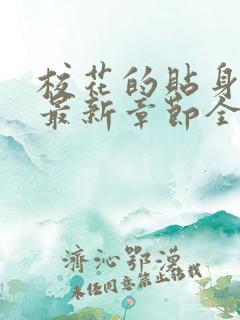 校花的贴身
最新章节全
济沁鄂漠
未经同意禁止转载